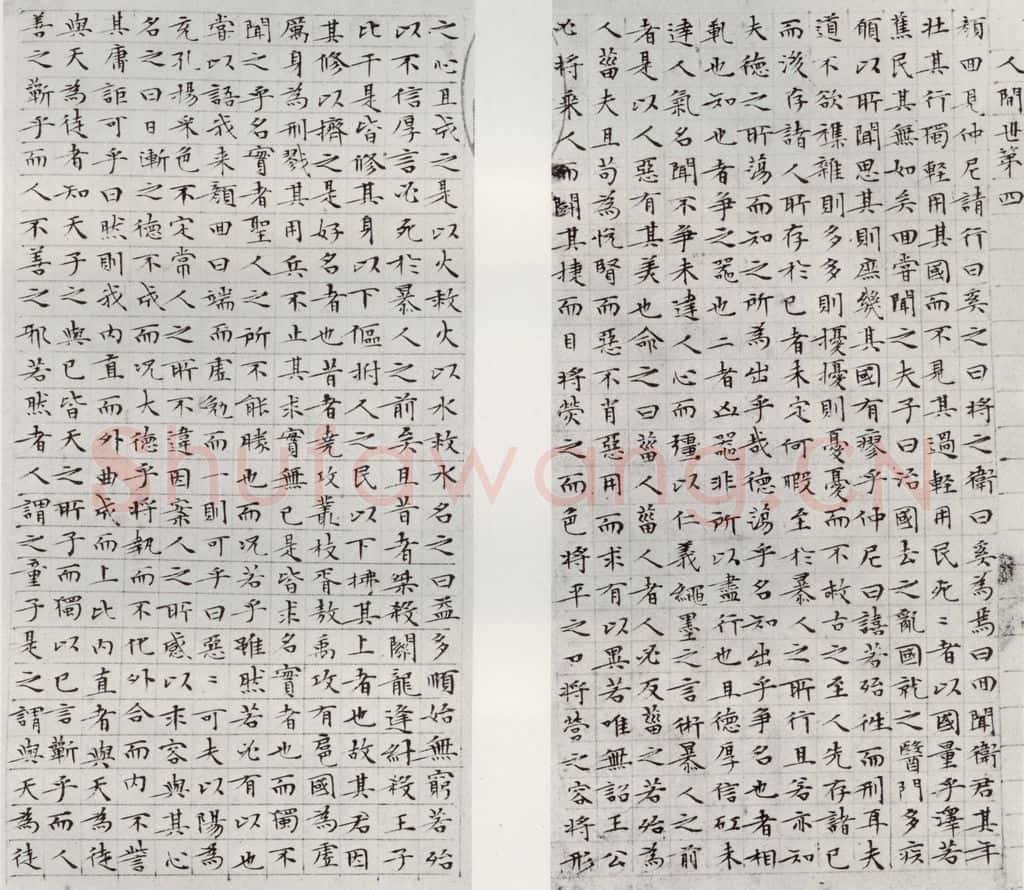 人間世第四
顏回見仲尼請行曰奚之曰將之衛曰奚為焉曰回聞衛君其年
壯其行獨輕用其國而不見其過輕用民死〻者以國量乎澤若
蕉民其無如矣回嘗聞之夫子曰治國去之亂國就之醫門多疾
願以所聞思其則庶幾其國有瘳乎仲尼曰譆若殆往而刑耳夫
道不欲雜雜則多多則擾擾則憂憂而不救古之至人先存諸已
而後存諸人所存於已者未定何暇至於暴人之所行且若亦知
夫德之所蕩而知之所為出乎哉德蕩乎名知出乎爭名也者相
軋也知也者爭之器也二者凶器非所以盡行也且德厚信矼未
達人氣名聞不爭未達人心而彊以仁義繩墨之言術暴人之前
者是以人惡有其美也命之曰菑人菑人者人必反菑之若殆為
人菑夫且苟為悅賢而惡不肖惡用而求有以異若唯無詔王公
必將乘人而鬭其捷而目將熒之而色將平之口將營之容將形
之心且成之是以火救火以水救水名之曰益多順始無窮若殆
以不信厚言必死於暴人之前矣且昔者桀殺關龍逢紂殺王子
比干是皆修其身以下傴拊人之民以下拂其上者也故其君因
其修以擠之是好名者也昔者堯攻叢枝胥敖禹攻有扈國為虛
厲身為刑戮其用兵不止其求實無已是皆求名實者也而獨不
聞之乎名實者聖人之所不能勝也而況若乎雖然若必有以也
嘗以語我來顏回曰端而虛勉而一則可乎曰惡〻可夫以陽為
充孔揚采色不定常人之所不違因案人之所感以求容與其心
名之曰日漸之德不成而況大德乎將執而不化外合而內不訾
其庸詎可乎曰然則我內直而外曲成而上比內直者與天為徒
與天為徒者知天子之與已皆天之所子而獨以已言蘄乎而人
善之蘄乎而人不善之邪若然者人謂之童子是之謂與天為徒
Shufawang.CN